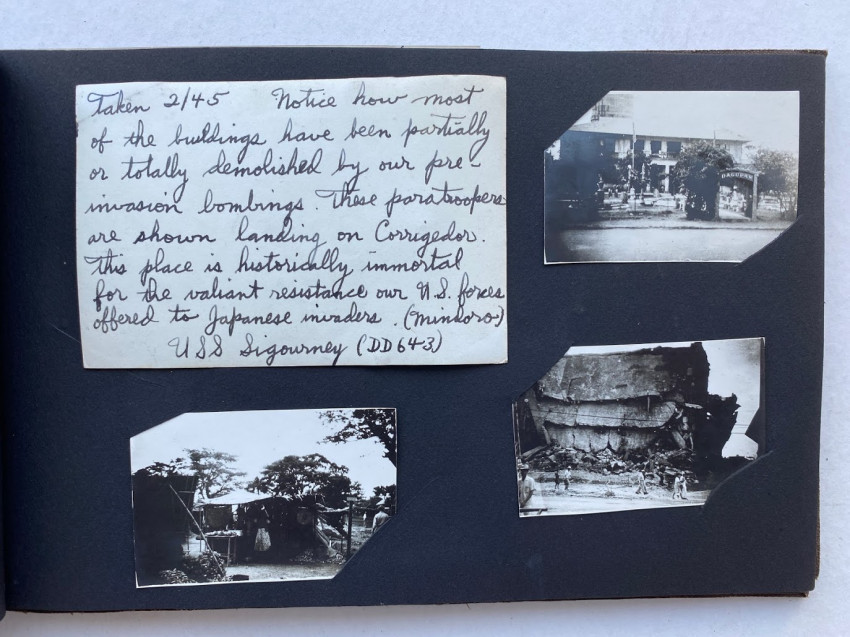 Taken 2/45 Notice how most
of the buildings have been partially
or totally demolished by our pre-
invasion bombings. These paratroopers
are shown landing on Corrigedor.
This place is historically immortal
for the valiant resistance our U.S. forces
offered to Japanese invaders. (Mindoro)
USS Sigourney (DD643)
DAGUPAN